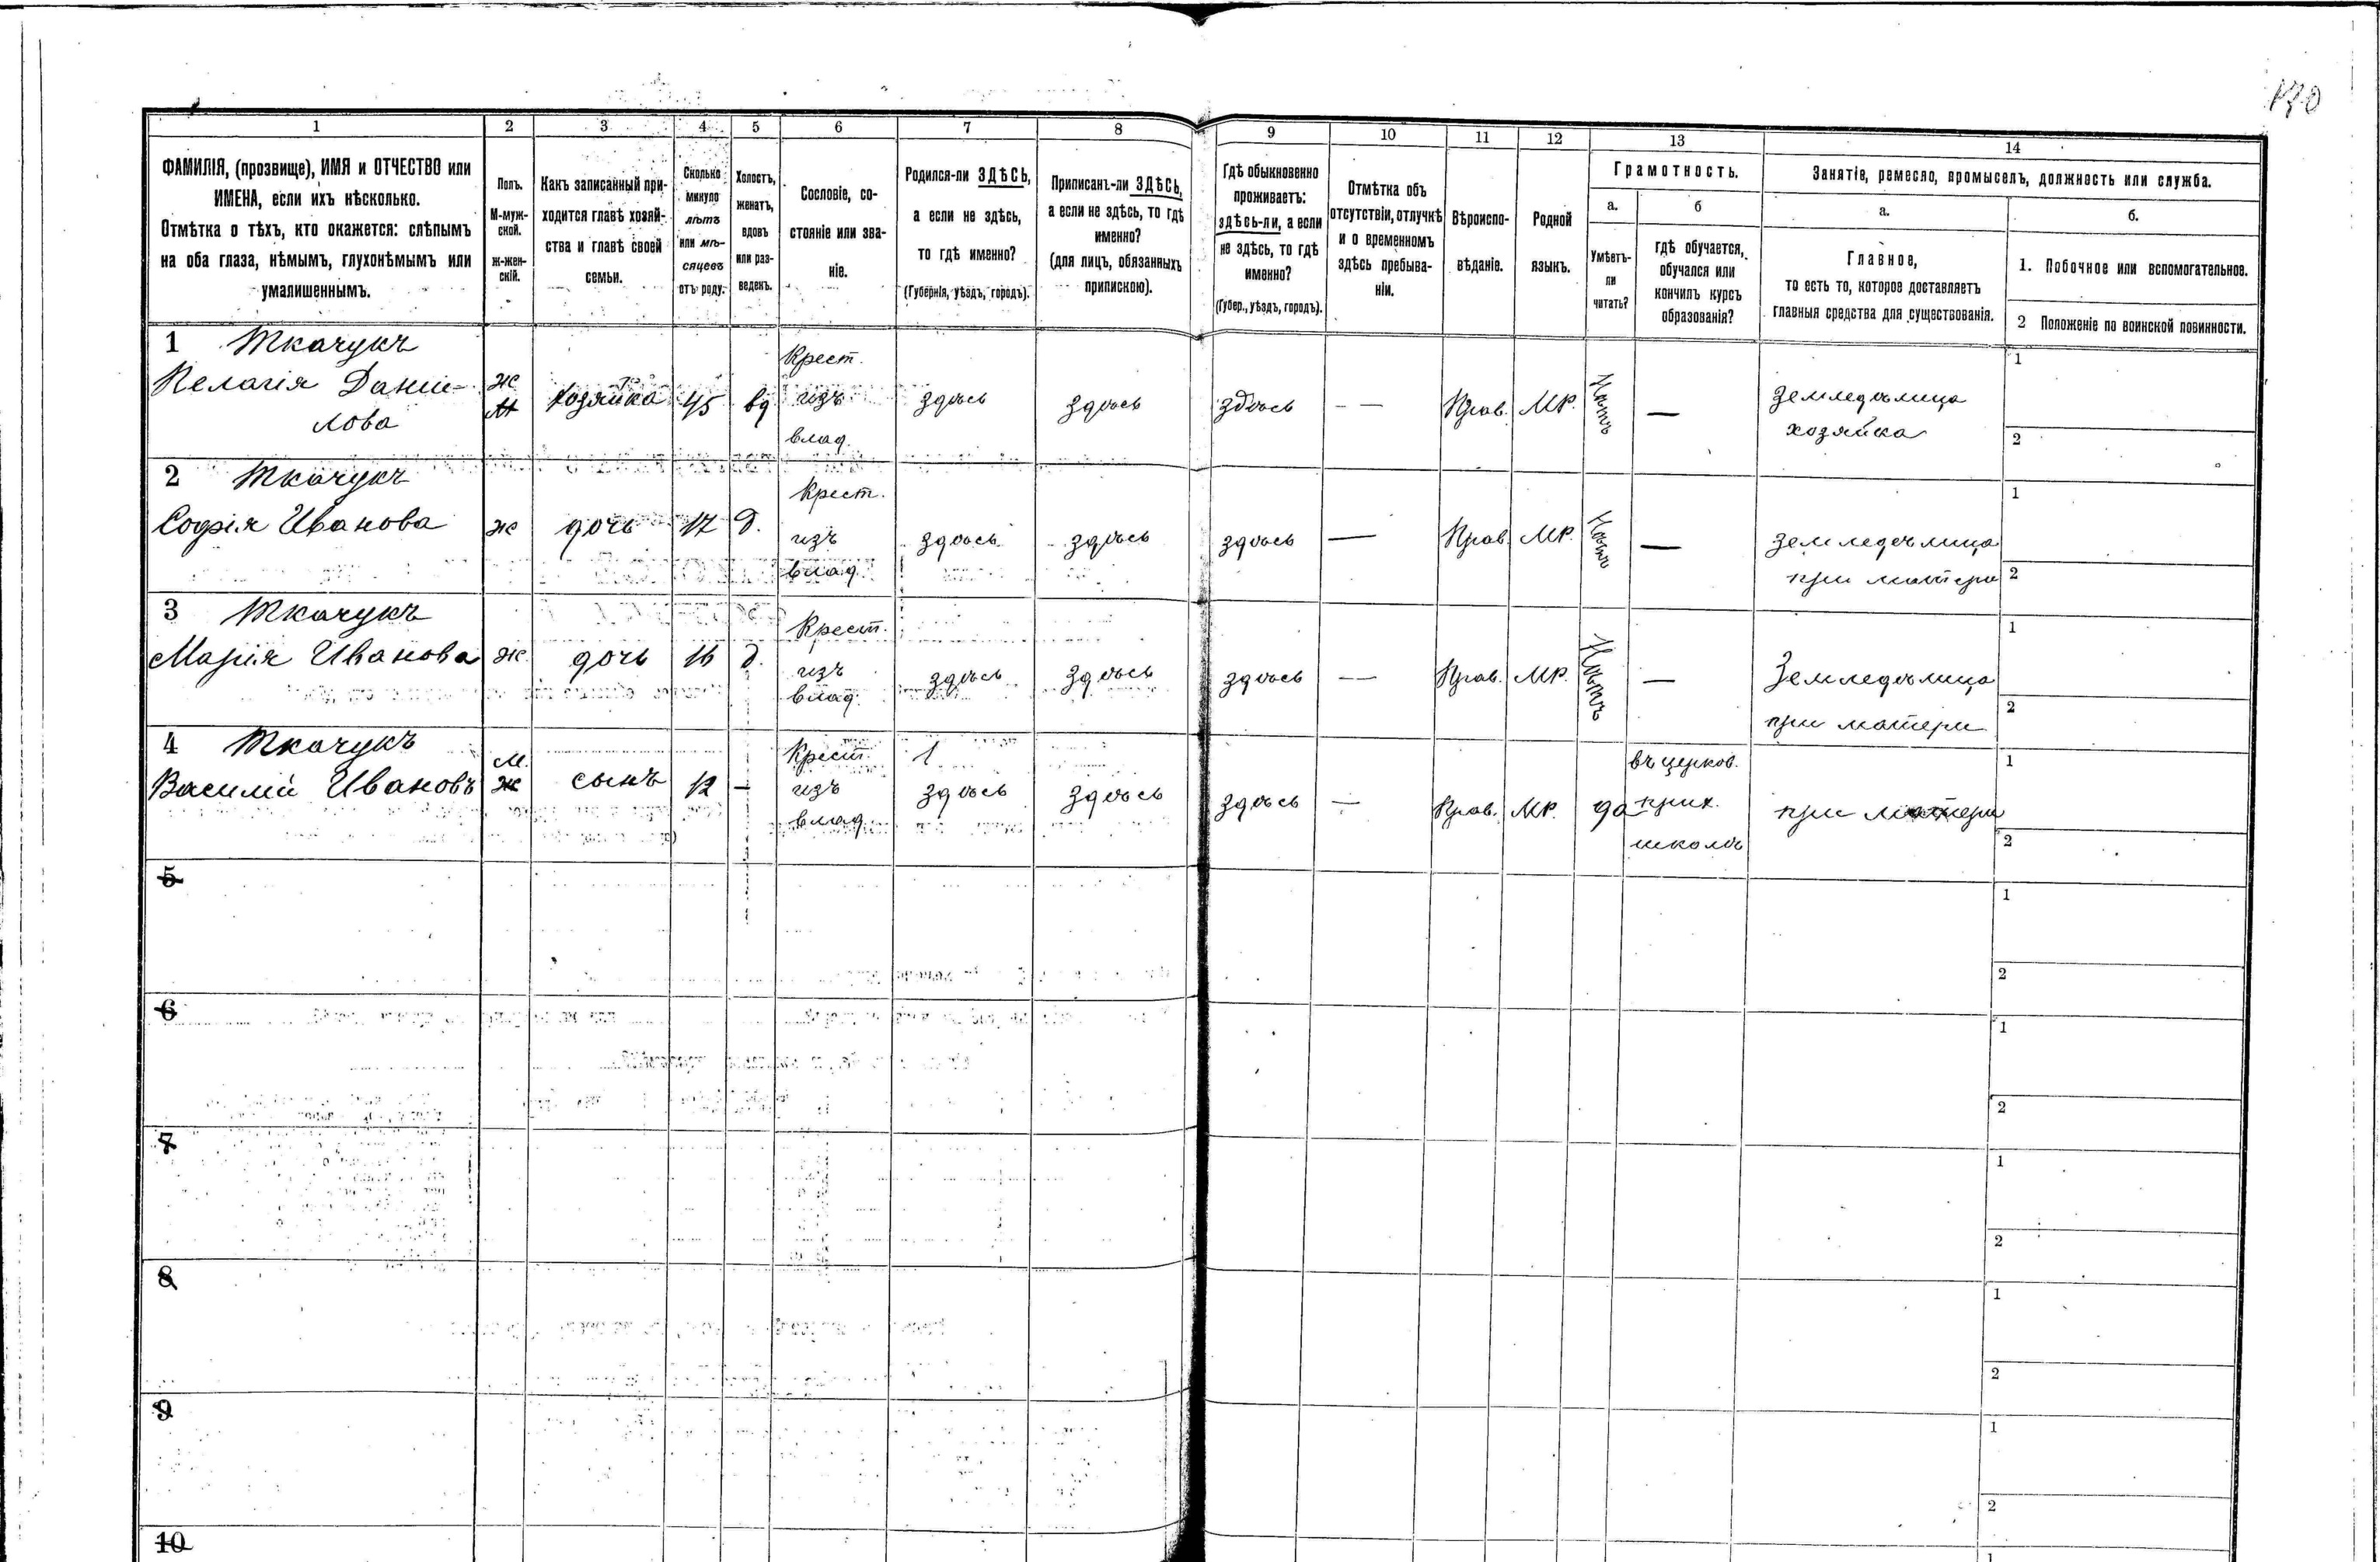 170
1 2 3 4 5 6 7 8 9 10 11 12 13 14
ФАМИЛІЯ, (прозвище), ИМЯ и ОТЧЕСТВО или
ИМЕНА, если ихъ нѣсколько.
Отмѣтка о тѣхъ, кто окажется: слѣпымъ
на оба глаза, нѣмымъ, глухонѣмымъ или
умалишеннымъ.
Полъ.
М-муж-
ской.
ж-жен-
скій.
Какъ записанный при-
ходится главѣ хозяй-
ства и главѣ своей
семьи.
Сколько
минуло
лѣтъ
или мѣ-
сяцевъ
отъ роду.
Холостъ,
женатъ,
вдовъ
или раз-
веденъ.
Сословіе, со-
стояніе или зва-
ніе.
Родился-ли ЗДѢСЬ,
а если не здѣсь,
то гдѣ именно?
(Губернія, уѣздъ, городъ).
Приписанъ-ли ЗДѢСЬ,
а если не здѣсь, то гдѣ
именно?
(для лицъ, обязанныхъ
припискою).
Гдѣ обыкновенно
проживаетъ:
здѣсь-ли, а если
не здѣсь, то гдѣ
именно?
(Губер., уѣздъ, городъ).
Отмѣтка объ
отсутствіи, отлучкѣ
и о временномъ
здѣсь пребыва-
ніи.
Вѣроиспо-
вѣданіе.
Родной
языкъ.
Грамотность.
а.
Умѣетъ-
ли
читать?
б
гдѣ обучается,
обучался или
кончилъ курсъ
образованія?
Занятіе, ремесло, промыселъ, должность или служба.
а.
Главное,
то есть то, которое доставляетъ
главныя средства для существованія.
б.
1. Побочное или вспомогательное.
2 Положеніе по воинской повинности.
1 Ткачукъ
Пелагія Дани-
лова
ж
м
хозяйка
45
вд
Крест.
изъ
влад.
здѣсь
здѣсь
здѣсь
— —
Прав.
МР.
Нѣтъ
—
Земледѣлица
хозяйка
1
2
2 Ткачукъ
Софія Иванова
ж
дочь
17
д.
Крест.
изъ
влад.
здѣсь
здѣсь
здѣсь
—
Прав.
МР.
Нѣтъ
—
земледѣлица
при матери
1
2
3 Ткачукъ
Марія Иванова
ж.
дочь
16
д.
Крест.
изъ
влад.
здѣсь
здѣсь
здѣсь
—
Прав.
МР.
Нѣтъ
—
Земледѣлица
при матери
1
2
4 Ткачукъ
Василій Ивановъ
М.
ж
сынъ
12
—
Крест.
изъ
влад.
здѣсь
здѣсь
здѣсь
—
Прав.
МР.
да
въ церков.
прих.
школѣ
при матери
1
2
5
1
2
6
1
2
7
1
2
8
1
2
9
1
2
10
1